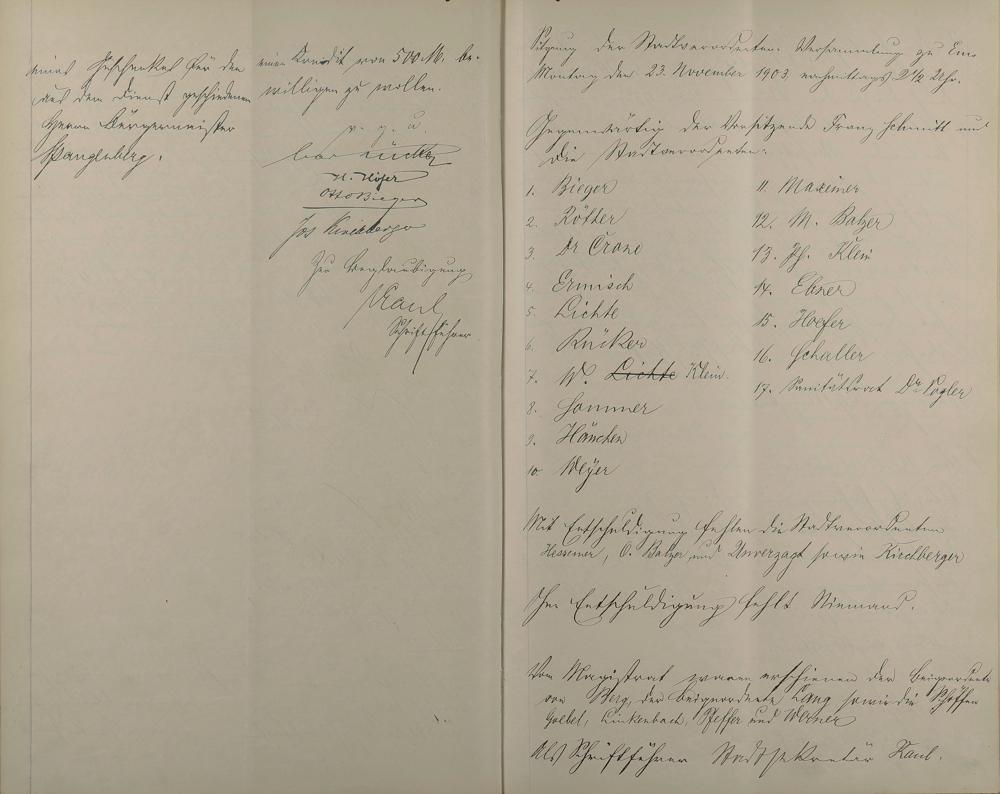 eines Geschenkes für den
aus dem Dienst geschiedenen
Herrn Bürgermeister
Spangenberg.
einen Kredit von 500 M. be-
willigen zu wollen.
v. g. u.
Rücker
H. Höfer
Otto Bieger
Jos Kirchberger
Zur Beglaubigung
Kaul
Schriftführer
Sitzung der Stadtverordneten-Versammlung zu Ems
Montag den 23. November 1903, nachmittags Uhr.
Gegenwärtig der Vorsitzende Franz Schmitt und
die Stadtverordneten:
1. Bieger
2. Röther
3. Dr Crone
4. Ermisch
5. Lichte
6. Rücker
7. W. Lichte Klein.
8. Sommer
9. Hänchen
10. Meyer
11. Maximer
12. M. Balzer
13. Ph. Klein
14. Ebner
15. Hoefer
16. Schaller
17. Sanitätsrat Dr Vogler
Mit Entschuldigung fehlen die Stadtverordneten
Hessemer, O. Balzer und Unverzagt sowie Kirchberger
Ohne Entschuldigung fehlt Niemand.
Vom Magistrat waren erschienen der Beigeordnete
von Berg, der Beigeordnete Lang sowie die Schöffen
Goebel, Linkenbach, Pfeffer und Werner
Als Schriftführer Stadtsekretär Kaul.